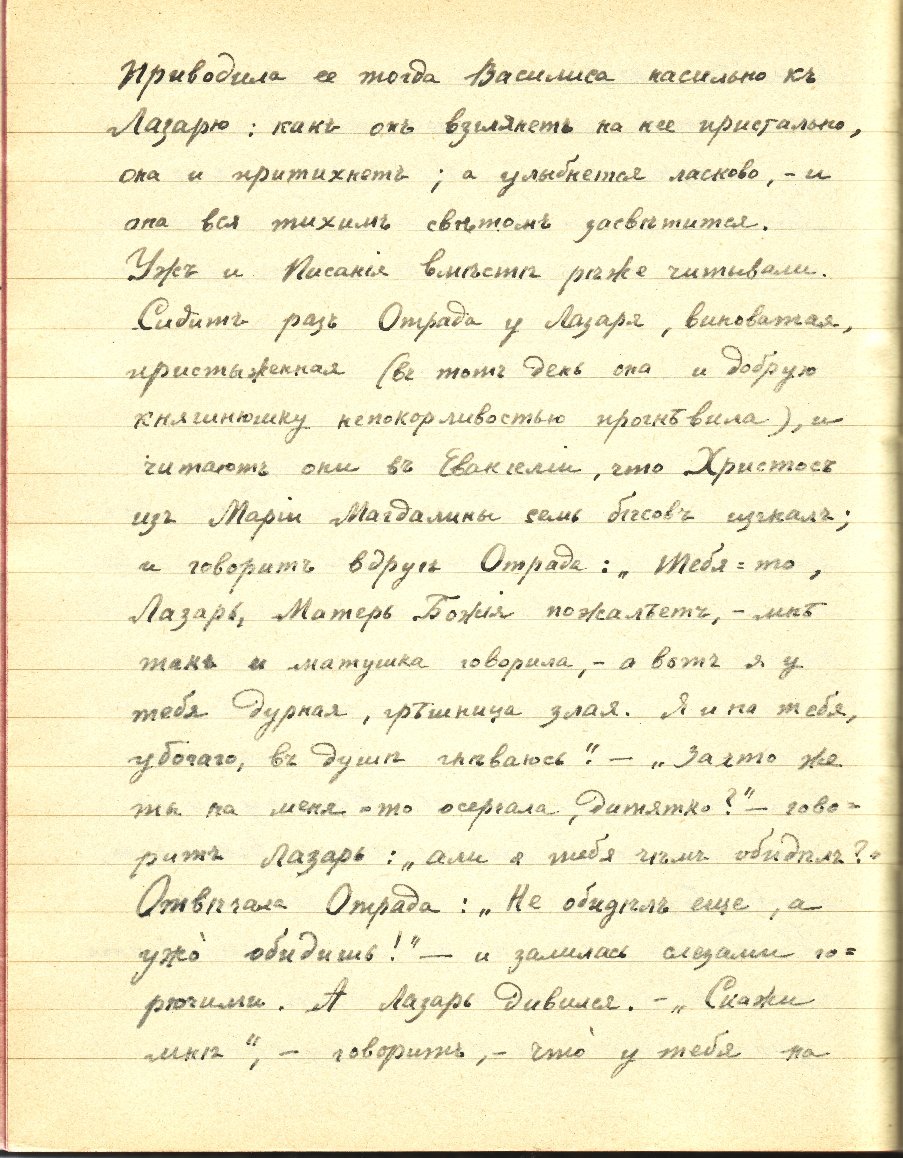 Приводила ее тогда Василиса насильно къ
Лазарю : какъ онъ взглянетъ на нее пристально,
она и притихнетъ ; а улыбнется ласково, – и
она вся тихимъ свѣтомъ засвѣтится.
Ужъ и Писанія вмѣстѣ рѣже читывали.
Сидитъ разъ Отрада у Лазаря, виноватая,
пристыженная (въ тотъ день она и добрую
княгинюшку непокорливостью прогнѣвила), и
читаютъ они въ Евангеліи, что Христосъ
изъ Маріи Магдалины семь бѣсовъ изгналъ ;
и говоритъ вдругъ Отрада : „ Тебя = то,
Лазарь, Матерь Божія пожалѣетъ, – мнѣ
такъ и матушка говорила, – а вотъ я у
тебя дурная, грѣшница злая. Я и на тебя,
убогаго, въ душѣ гнѣваюсь“! – „ За что же
ты на меня = то осерчала, дитятко?“ – гово=
ритъ Лазарь : „ али я тебя чѣмъ обидѣлъ ?“
Отвѣчала Отрада : „ Не обидѣлъ еще, а
ужо̀ обидишь !“ — и залилась слезами го=
рючими. А Лазарь дивился. – „ Скажи
мнѣ “, – говоритъ, – что̀ у тебя на